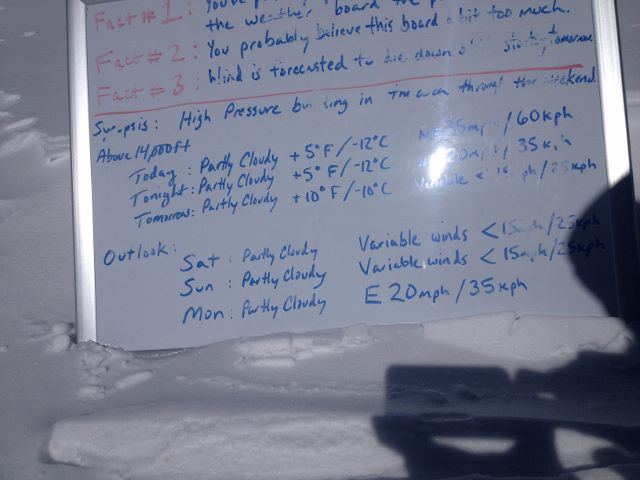 Fact # 1: You've
the weather board the
Fact # 2: You probably believe this board a bit too much.
Fact # 3: Wind is forecasted to die down tomorrow
Synopsis: High Pressure building in the area through the weekend.
Above 14,000ft
Today: Partly Cloudy +5°F/-12°C 35mph/60kph
Tonight: Partly Cloudy +5°F/-12°C 20mph/35kph
Tomorrow: Partly Cloudy +10°F/-10°C Variable < 15mph/25kph
Outlook:
Sat: Partly Cloudy Variable winds <15mph/25kph
Sun: Partly Cloudy Variable winds <15mph/25kph
Mon: Partly Cloudy E 20mph/35kph